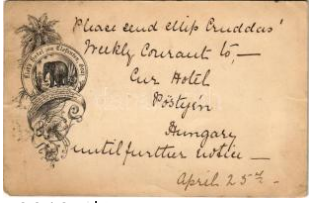 Please send Miss Cruddas'
Weekly Courant to, —
Cur Hotel
Pöstyén
Hungary
until further notice —
April 25th